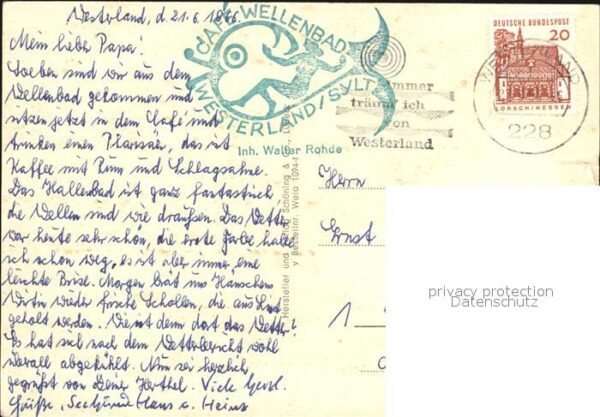 Westerland, d. 21.6.1966.
Mein lieber Papa!
Soeben sind wir aus dem
Wellenbad gekommen und
sitzen jetzt in dem Café und
trinken einen Pharisäer, das ist
Kaffee mit Rum und Schlagsahne.
Das Hallenbad ist ganz fantastisch,
die Wellen sind wie draußen. Das Wetter
war heute sehr schön, die erste Farbe habe
ich schon weg, es ist aber immer eine
leichte Brise. Morgen brät uns
Wirtin wieder frische Schollen, die aus
geholt werden. Wie ist denn dort das Wetter?
Es hat sich nach dem Wetterbericht wohl
überall abgekühlt. Nun sei herzlich
gegrüßt von Deiner Viele herzl.
Grüße, Hans u. Heinz
CAFÉ WELLENBAD
WESTERLAND/SYLT
Inh. Walter Rohde
Hersteller und Verlag Schöning & Co. Lübeck
Bestellnr. Weld 1094
träum ich
von
Westerland
DEUTSCHE BUNDESPOST
20
LORSCH/HESSEN
WESTERLAND
228
Herrn
Ernst
1
privacy protection
Datenschutz